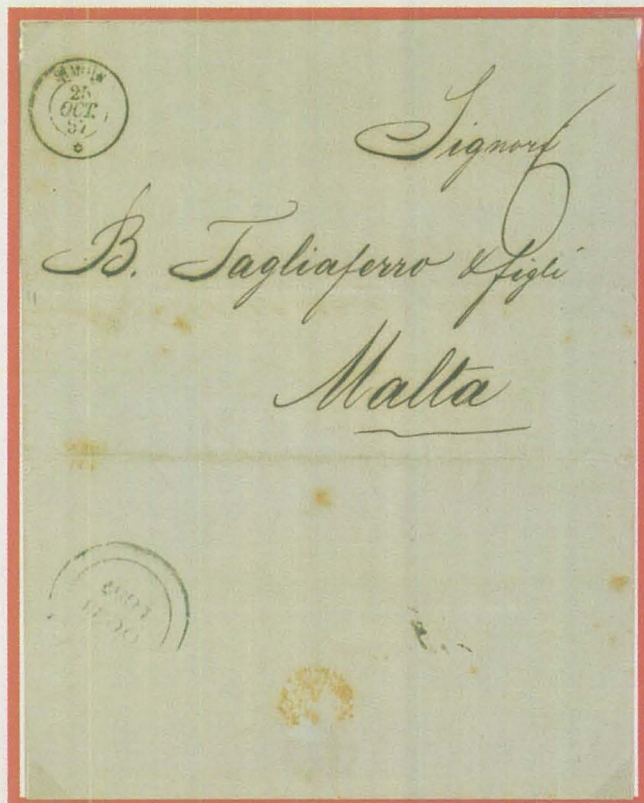 25
OCT.
57
Signori
B. Tagliaferro & figli
Malta